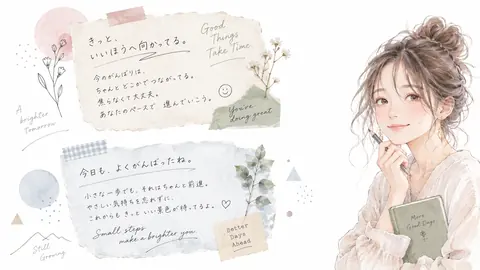 きっと、
いいほうへ向かってる。
今のがんばりは、
ちゃんとどこかでつながってる。
焦らなくて大丈夫。
あなたのペースで 進んでいこう。
Good
Things
Take Time
You're
doing great
A
brighter
Tomorrow
今日も、よくがんばったね。
小さな一歩でも、それはちゃんと前進。
やさしい気持ちを忘れずに、
これからも きっと いい景色が待ってるよ。
Small steps
make a brighter you
Better
Days
Ahead
Still
Growing
More
Good Days